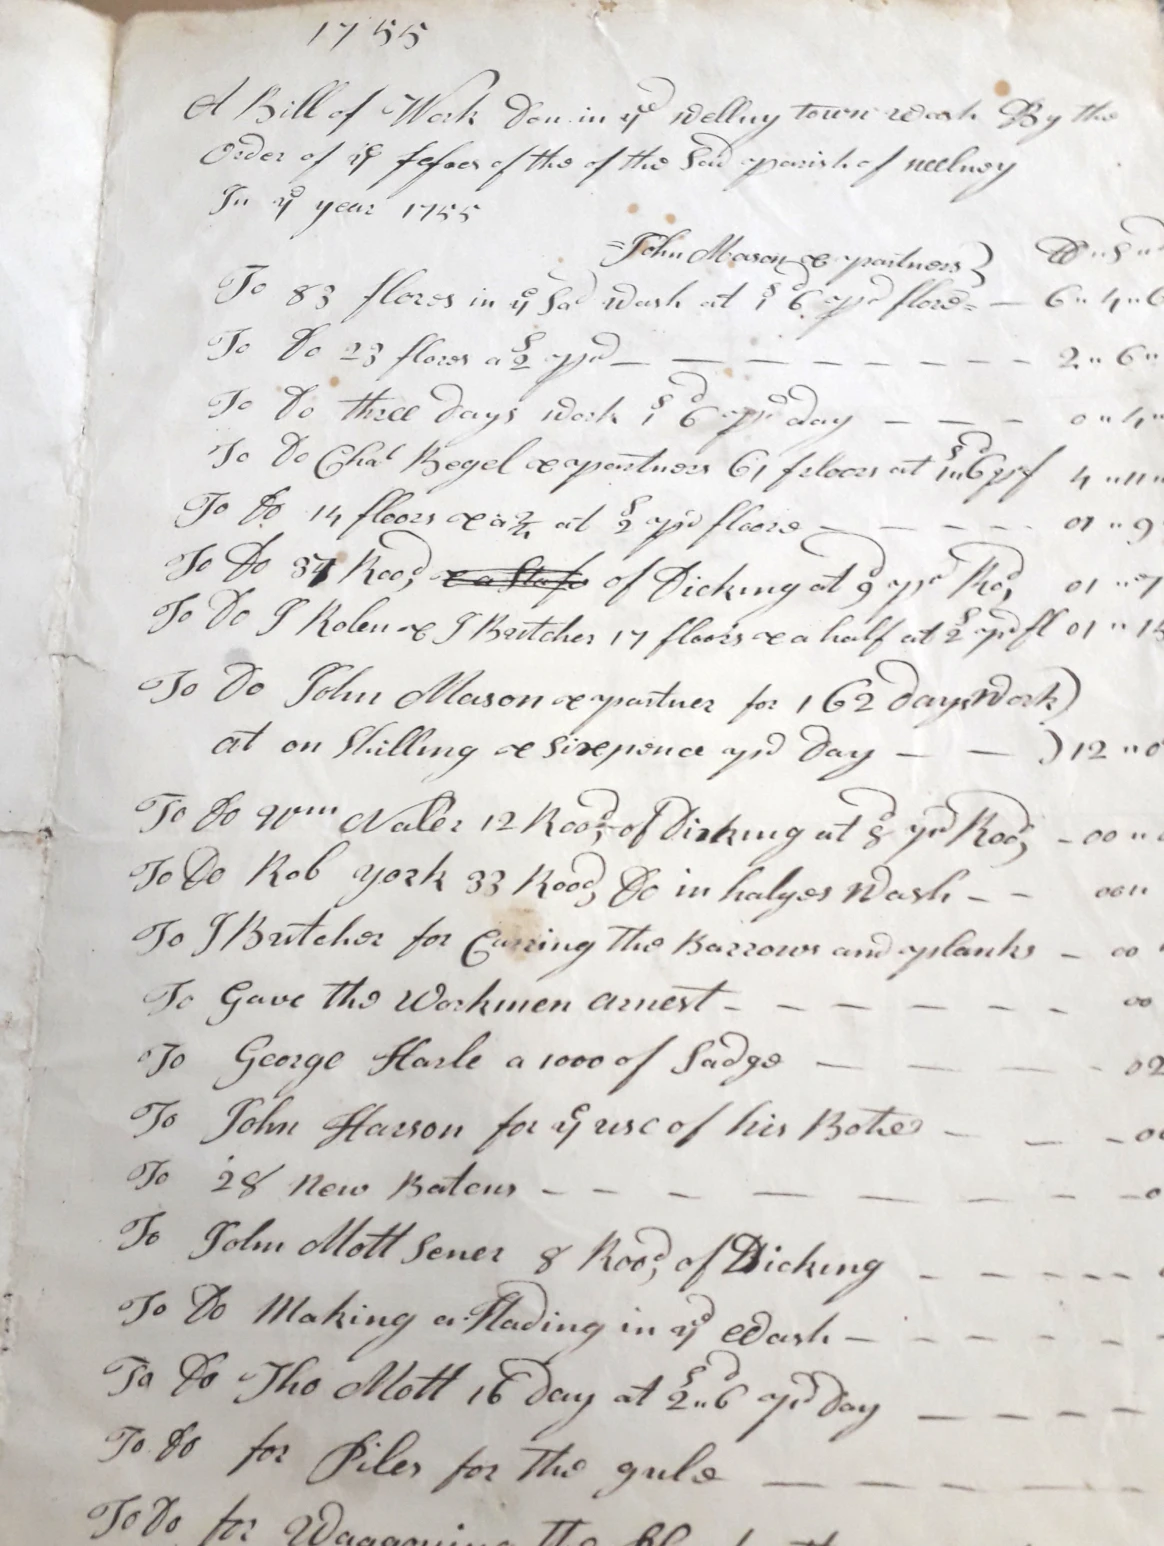 1755
A Bill of Work Don in ye Wellny town wash By the
Order of ye fefoes of the of the Sad parish of wellney
In ye year 1755
John Mason & partners } £ " s "
To 83 flores in ye Sad wash at 1s 6d pr flore — 6 " 4 " 6
To Do 23 flores a 2s pr — — — — — — — 2 " 6 "
To Do three days work 1s 6d pr day — — — 0 " 4 "
To Do Chal Regel & partners 61 frloors at 1s " 6d pr f 4 " 11 "
To Do 14 floors & a 1/2 at 2s pr floore — — — — 01 " 9
To Do 37 Rood of Dicking at 9 pr Rod 01 " 7
To Do J Rolen & J Butcher 17 floors & a half at 2s pr fl 01 " 15
To Do John Mason & partner for 162 days Work )
at on Shilling & sixpence pr day — — ) 12 " 0
To Do Wm Naler 12 Roods of Dicking at 8 pr Rood - 00 "
To Do Rob york 33 Roods Do in halyes Wash - - 00 "
To J Butcher for Carring the Barrows and planks - 00
To Gave the Workmen arnest - - - - - - - 00
To George Harle a 1000 of Sadge — — — - 02
To John Harson for ye use of his Bote — — - 00
To 28 New Batens - - - — — — - 0
To John Mott Sener 8 Roods of Dicking - - - - -
To Do Making a Stading in ye Wash - - - - -
To Do Tho Mott 16 Day at 2s " 6d pr Day — — — —
To Do for Piles for the gule — — — —
To Do for Waggoning the